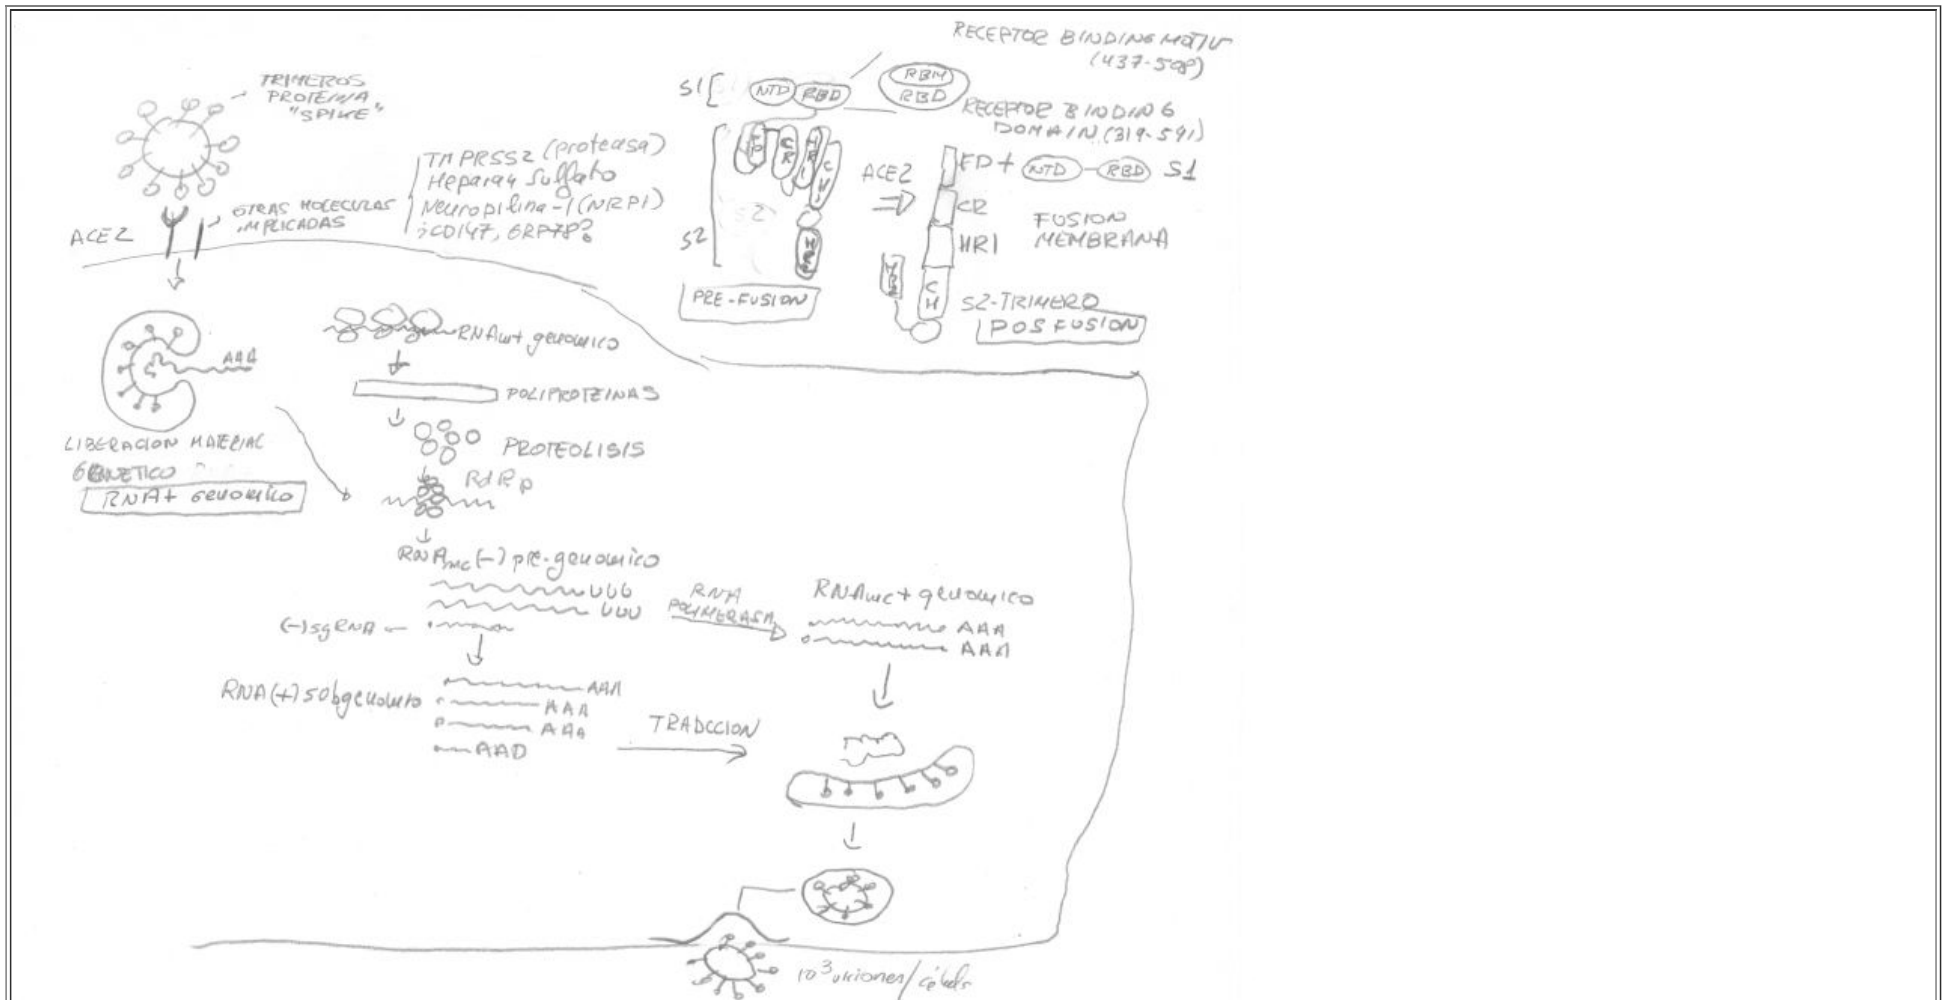 TRIMEROS
PROTEINA
"SPIKE"
ACE2
OTRAS MOLECULAS
IMPLICADAS
TMPRSS2 (proteasa)
Heparan Sulfato
Neuropilina-1 (NRP1)
¿CD147, GRP78?
RECEPTOR BINDING MOTIV
(437-508)
S1
NTD
RBD
RBM
RBD
RECEPTOR BINDING
DOMAIN (319-591)
S2
FP
CR
HR1
CH
HR2
PRE-FUSION
ACE2
FD + NTD - RBD S1
CR
HR1
CH
HR2
FUSION
MEMBRANA
S2-TRIMERO
POSFUSION
AAA
LIBERACION MATERIAL
GENETICO
RNA+ Genomico
RNAm+ genomico
POLIPROTEINAS
PROTEOLISIS
RdRp
RNAmc(-) pre-genomico
UUU
UUU
(-)sgRNA
RNA
POLIMERASA
RNAmc+ genomico
AAA
AAA
RNA(+) subgenomico
AAA
AAA
AAA
AAD
TRADCCION
10³ viriones/célula